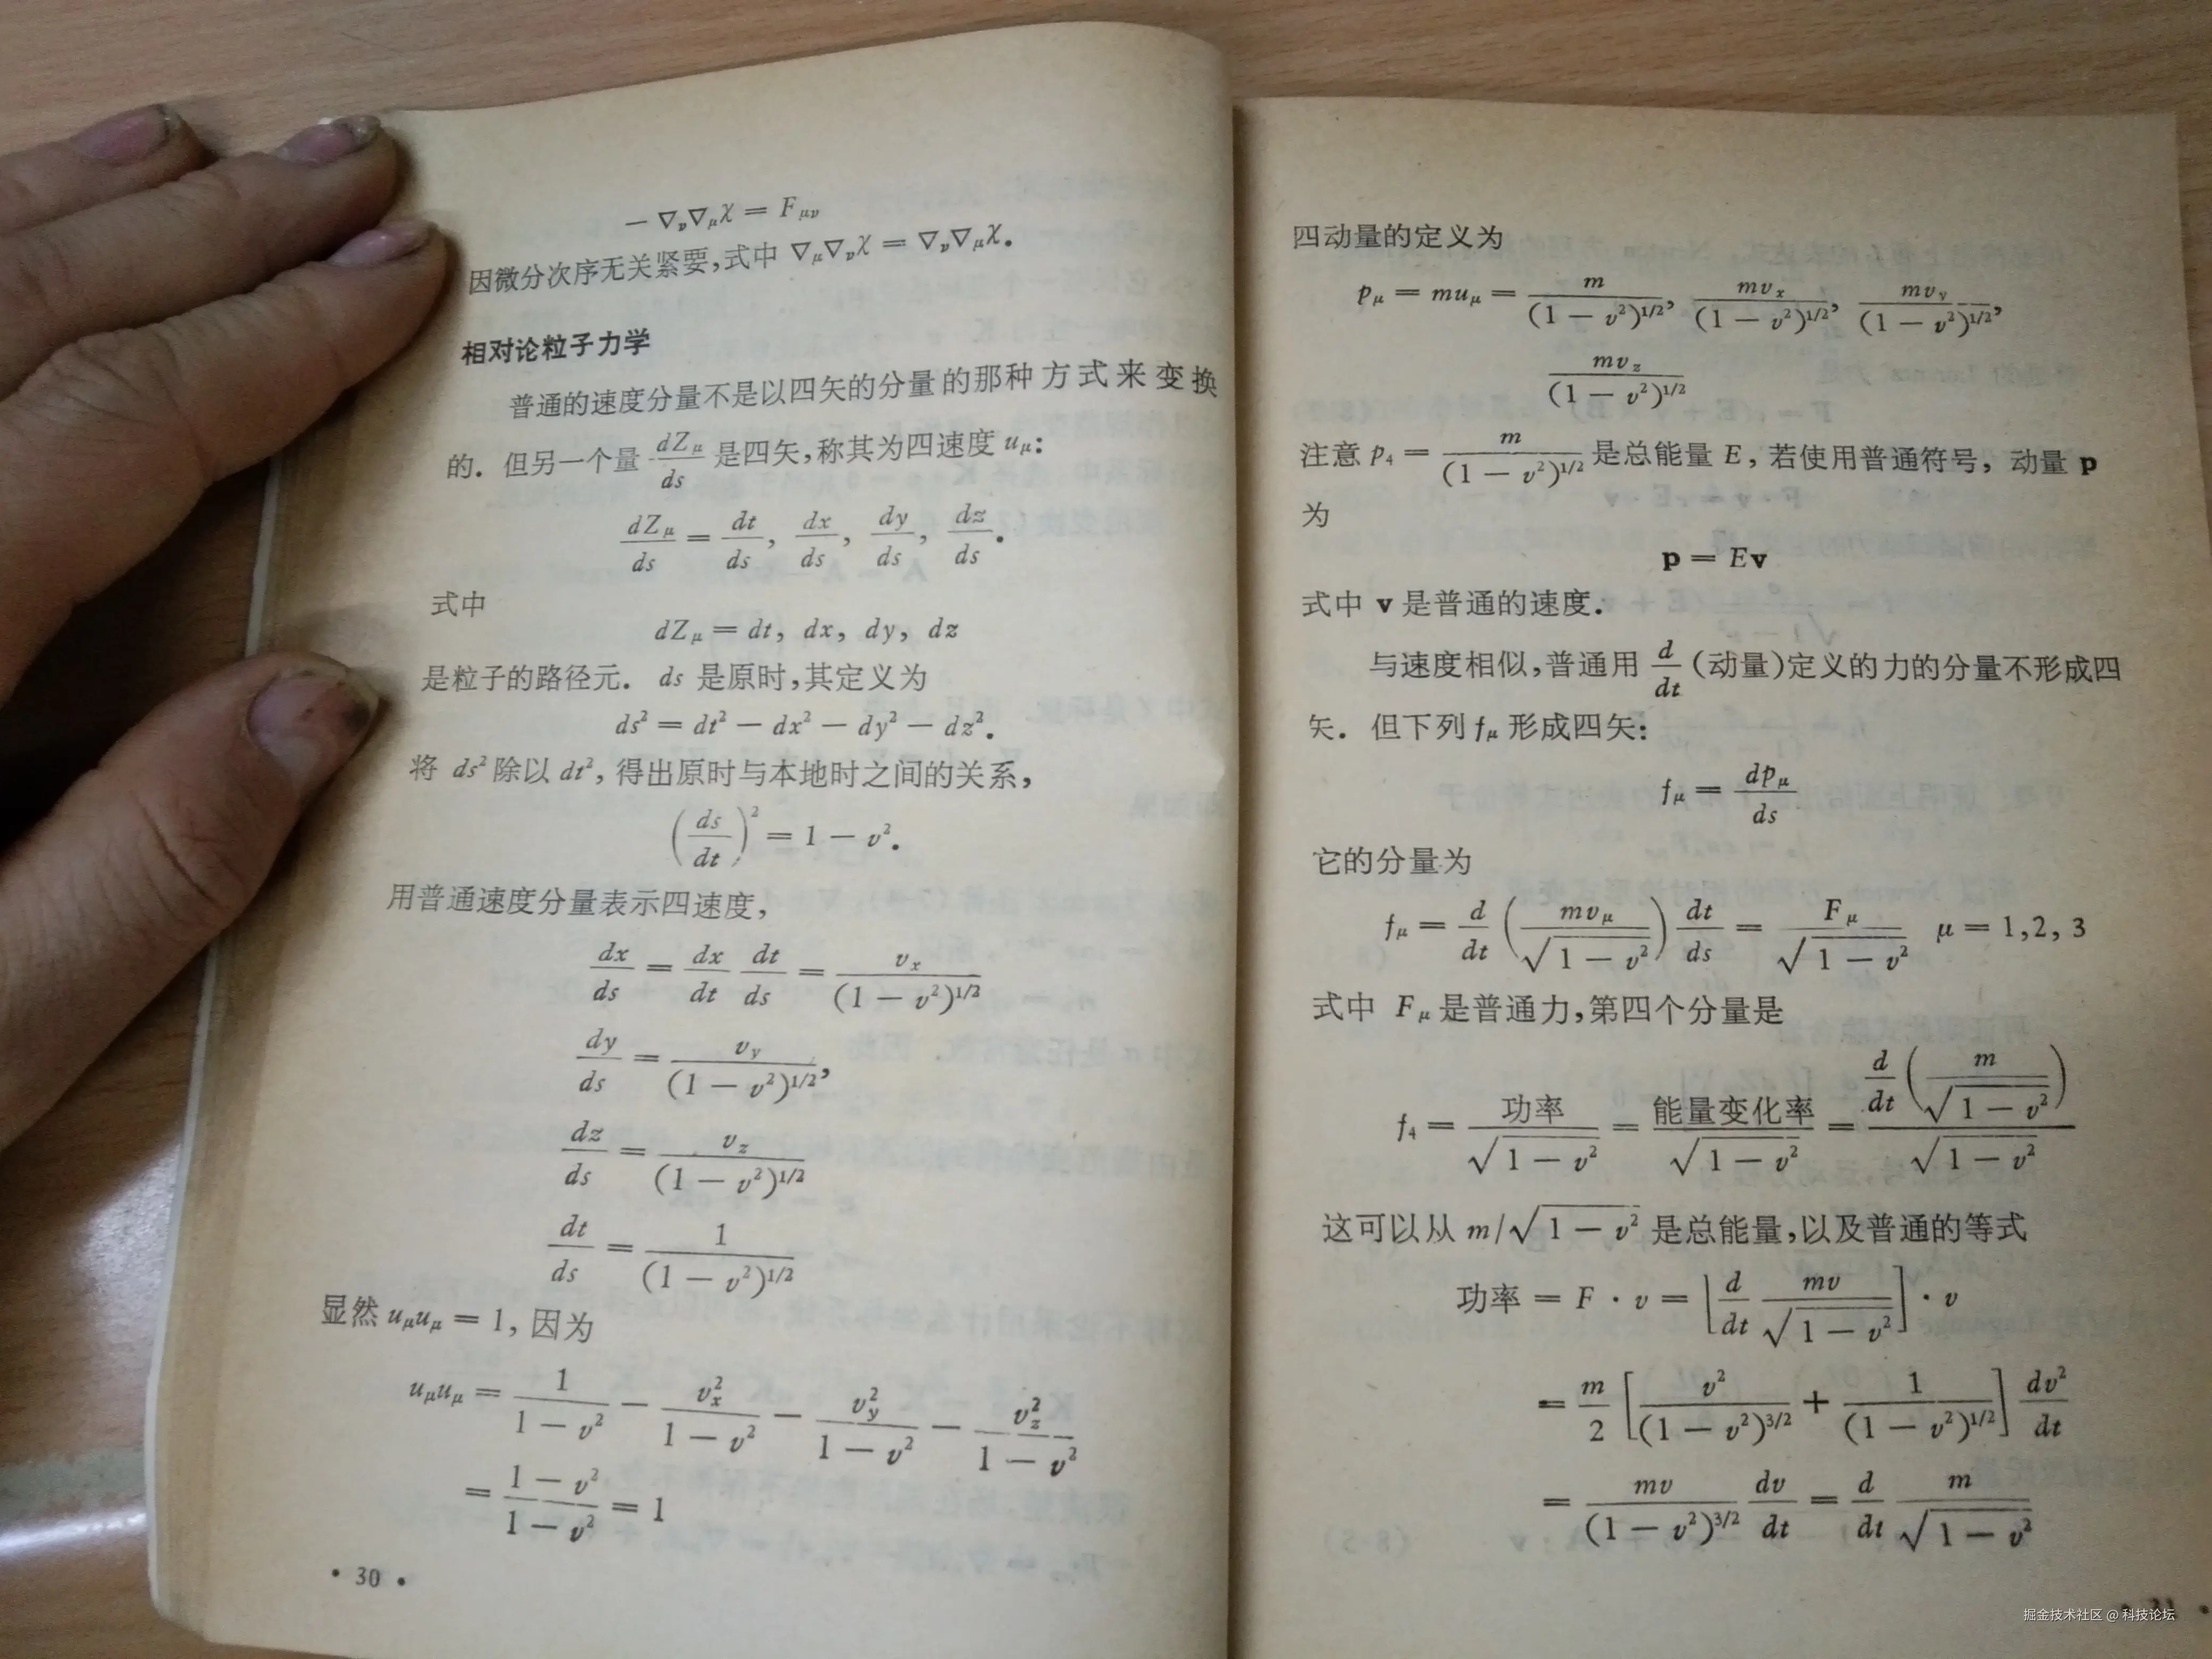 − ∇ν∇μχ = Fμν
因微分次序无关紧要,式中 ∇μ∇νχ = ∇ν∇μχ.
相对论粒子力学
普通的速度分量不是以四矢的分量的那种方式来变换
的. 但另一个量 dZμ/ds 是四矢,称其为四速度 uμ:
dZμ/ds = dt/ds, dx/ds, dy/ds, dz/ds.
式中
dZμ = dt, dx, dy, dz
是粒子的路径元. ds 是原时,其定义为
ds² = dt² − dx² − dy² − dz².
将 ds² 除以 dt², 得出原时与本地时之间的关系,
(ds/dt)² = 1 − v².
用普通速度分量表示四速度,
dx/ds = dx/dt dt/ds = vx/(1 − v²)^1/2
dy/ds = vy/(1 − v²)^1/2,
dz/ds = vz/(1 − v²)^1/2
dt/ds = 1/(1 − v²)^1/2
显然 uμuμ = 1, 因为
uμuμ = 1/(1 − v²) − vx²/(1 − v²) − vy²/(1 − v²) − vz²/(1 − v²)
= (1 − v²)/(1 − v²) = 1
• 30 •
四动量的定义为
pμ = muμ = m/(1 − v²)^1/2, mvx/(1 − v²)^1/2, mvy/(1 − v²)^1/2,
mvz/(1 − v²)^1/2
注意 p4 = m/(1 − v²)^1/2 是总能量 E, 若使用普通符号, 动量 p
为
p = Ev
式中 v 是普通的速度.
与速度相似,普通用 d/dt (动量)定义的力的分量不形成四
矢. 但下列 fμ 形成四矢:
fμ = dpμ/ds
它的分量为
fμ = d/dt (mvμ/√(1 − v²)) dt/ds = Fμ/√(1 − v²) μ = 1,2, 3
式中 Fμ 是普通力,第四个分量是
f4 = 功率/√(1 − v²) = 能量变化率/√(1 − v²) = d/dt (m/√(1 − v²))/√(1 − v²)
这可以从 m/√(1 − v²) 是总能量,以及普通的等式
功率 = F · v = [d/dt mv/√(1 − v²)] · v
= m/2 [v²/(1 − v²)^3/2 + 1/(1 − v²)^1/2] dv²/dt
= mv/(1 − v²)^3/2 dv/dt = d/dt m/√(1 − v²)
掘金技术社区 @ 科技论坛